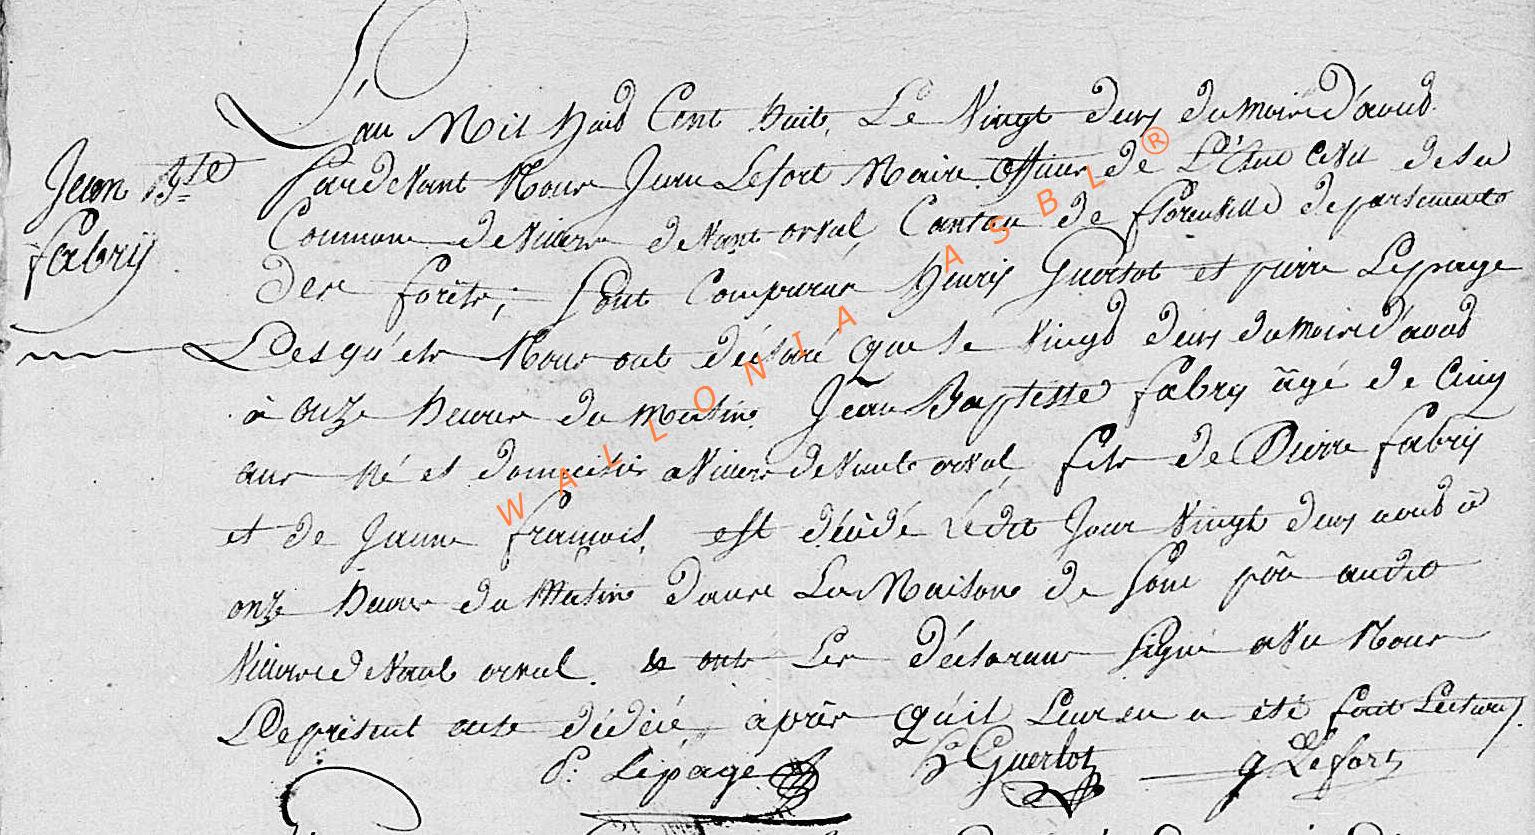 L'an Mil huid Cent huit, Le Vingt deux du Moire d'aoud
Jean Bte
fabrij
Pardevant Nous Jean Lefort Maire officier de L'Etat Civil de la
Commune de Villers devant orval, Canton de florenville departements
Des forêts; Sont Comparus Henrij Guerlot et pierre Lepage
Lesquels Nous ont déclaré que le Vingd deux du Moire d'aoud
à onze heures du matin. Jean Baptiste fabrij âgé de Cinq
ans né et domicilié a Villers devant orval fils de Pierre fabrij
et de Jeanne francois, est décédé Ledit Jour Vingt deux aoud à
onze heures du Matin Dans La Maison de Son audit
Villers devant orval. ont Les déclarans Signé avec Nous
Le présent acte de décé, après qu'il Leur en a été fait Lecture.
P. Lepage H Guerlot J Lefort
WALLONIA ASBL ®